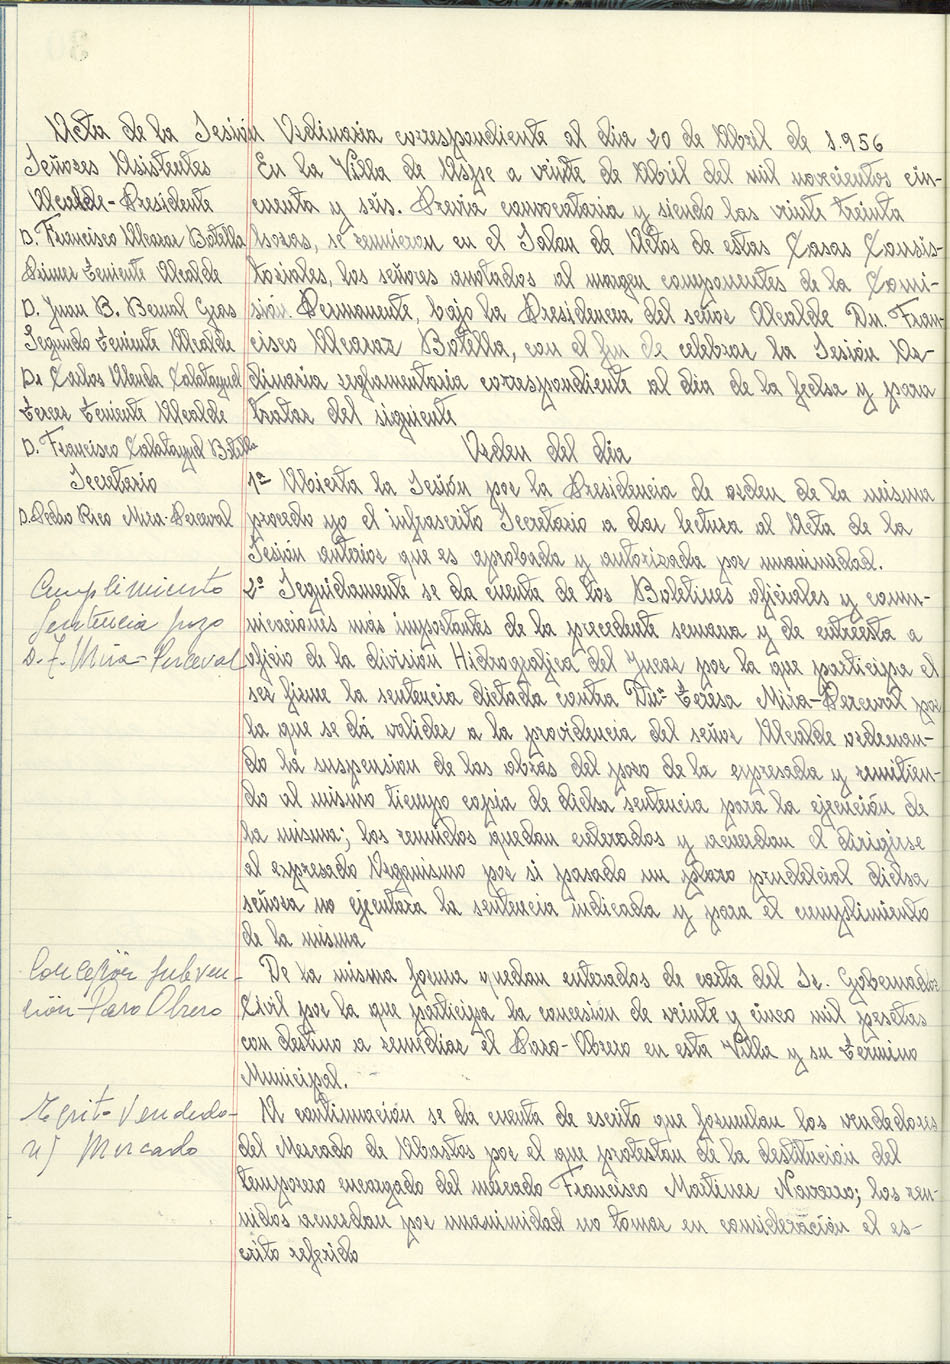 Acta de la Sesión Ordinaria correspondiente al dia 20 de Abril de 1.956
Señores Asistentes
Alcalde-Presidente
D. Francisco Alcaraz Botella
Primer Teniente Alcalde
D. Juan B. Bernal Gras
Segundo Teniente Alcalde
Dn Carlos Calatayud
Tercer Teniente Alcalde
D. Francisco Calatayud Botella
Secretario
D. Pedro Rico Mira-Perceval
En la Villa de Aspe a veinte de Abril del mil novecientos cin-
cuenta y séis. Previa convocatoria y siendo las veinte treinta
horas, se reunieron en el Salon de Actos de estas Casas Consis-
toriales, los señores anotados al margen componentes de la Comi-
sión Permanente, bajo la Presidencia del señor Alcalde Dn. Fran-
cisco Alcaraz Botella, con el fin de celebrar la Sesión Or-
dinaria reglamentaria correspondiente al dia de la fecha y para
tratar del siguiente
Orden del dia
1º Abierta la Sesión por la Presidencia de orden de la misma
procedo yo el infrascrito Secretario a dar lectura al Acta de la
Sesión anterior que es aprobada y autorizada por unanimidad.
Cumplimiento
Sentencia pozo
D. T. Mira-Perceval
2º Seguidamente se da cuenta de los Boletines oficiales y comu-
nicaciones más importantes de la precedente semana y de entre esta a
oficio de la división Hidrografica del Jucar por la que participa el
ser firme la sentencia dictada contra Dnª Teresa Mira-Perceval por
la que se dá validez a la providencia del señor Alcalde ordenan-
do la suspension de las obras del pozo de la expresada y remitien-
do al mismo tiempo copia de dicha sentencia para la ejecución de
la misma; los reunidos quedan enterados y acuerdan el dirigirse
al expresado Organismo por si pasado un plazo prudencial dicha
señora no ejecutara la sentencia indicada y para el cumplimiento
de la misma
Concesión subven-
ción Paro Obrero
De la misma forma quedan enterados de carta del Sr. Gobernador
Civil por la que participa la concesion de veinte y cinco mil pesetas
con destino a remediar el Paro-Obrero en esta Villa y su termino
Municipal.
Escrito Vendedo-
res Mercado
A continuación se da cuenta de escrito que formulan los vendedores
del Mercado de Abastos por el que protestan de la destitución del
temporero encargado del mercado Francisco Martinez Navarro; los reu-
nidos acuerdan por unanimidad no tomar en consideración el es-
crito referido